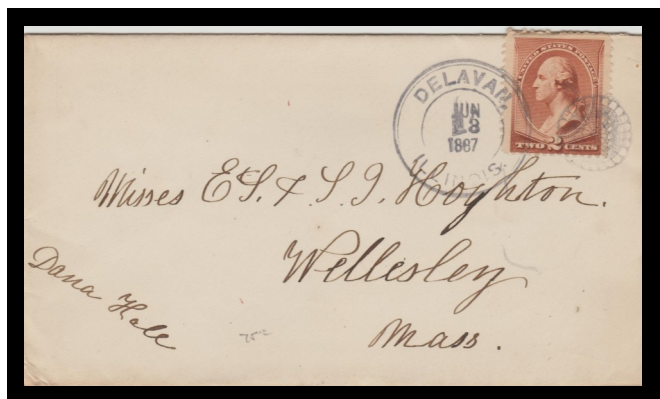 UNITED STATES POSTAGE
TWO 2 CENTS
DELAVAN,
JUN
1887
ILLINOIS.
Misses E. S. & S. I. Hoghton.
Wellesley
Mass.
Dana Hall